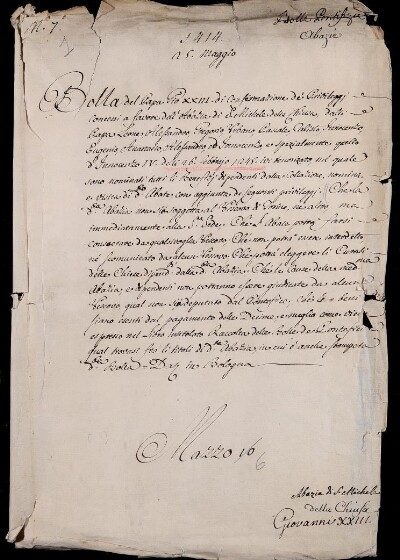 N.° 7.
Bolle Pontifizie
Abazie
1414.
25. Maggio
Bolla del Papa Gio XXIII. di Confermazione de' Privileggj
concessi a favore dell'Abazia di S. Michele della Chiusa, dalli
Papa Leone, Alessandro, Gregorio, Urbano, Pasquale, Calisto, Innocenzo,
Eugenio, Anastasio, Alessandro, ed Innocenzo, e spezialmente, quello
d'Innocenzo IV. delli 26. febbrajo 1245. ivi tenorizato nel quale
sono nominati tutti li Benefizj dipendenti dalla Collazione, nomina,
e visita di d.° Abate con aggiunta de seguenti privileggj Che la
d.ta Abazia non sia soggetta al Vescovo di Torino, nè altro ma
immediatamente alla S.ta Sede, Che l'Abate potrà farsi
consecrare da qualsivoglia Vescovo, Che non potrà esser interdetto
nè scomunicato da alcun Vescovo, Che potrà eleggere li Curati
delle Chiese dipend.ti dalla d.ta Abazia, Che le Cause della med.ma
Abazia, e dipendenti non potranno essere giudicate da alcun
Vescovo, qual non sia deputato dal Pontefice, Che le beni
siano esenti dal pagamento delle Decime, e meglio come vi è
espresso nel Libro intitolato Raccolta delle Bolle de S.i Pontefici
qual trovasi fra li titoli di d.ta Abazia, in cui è anche stampata
d.ta Bolla = Dat. in Bologna
Mazzo 16
6
Abazia di S. Michele
della Chiusa
Giovanni XXIII.